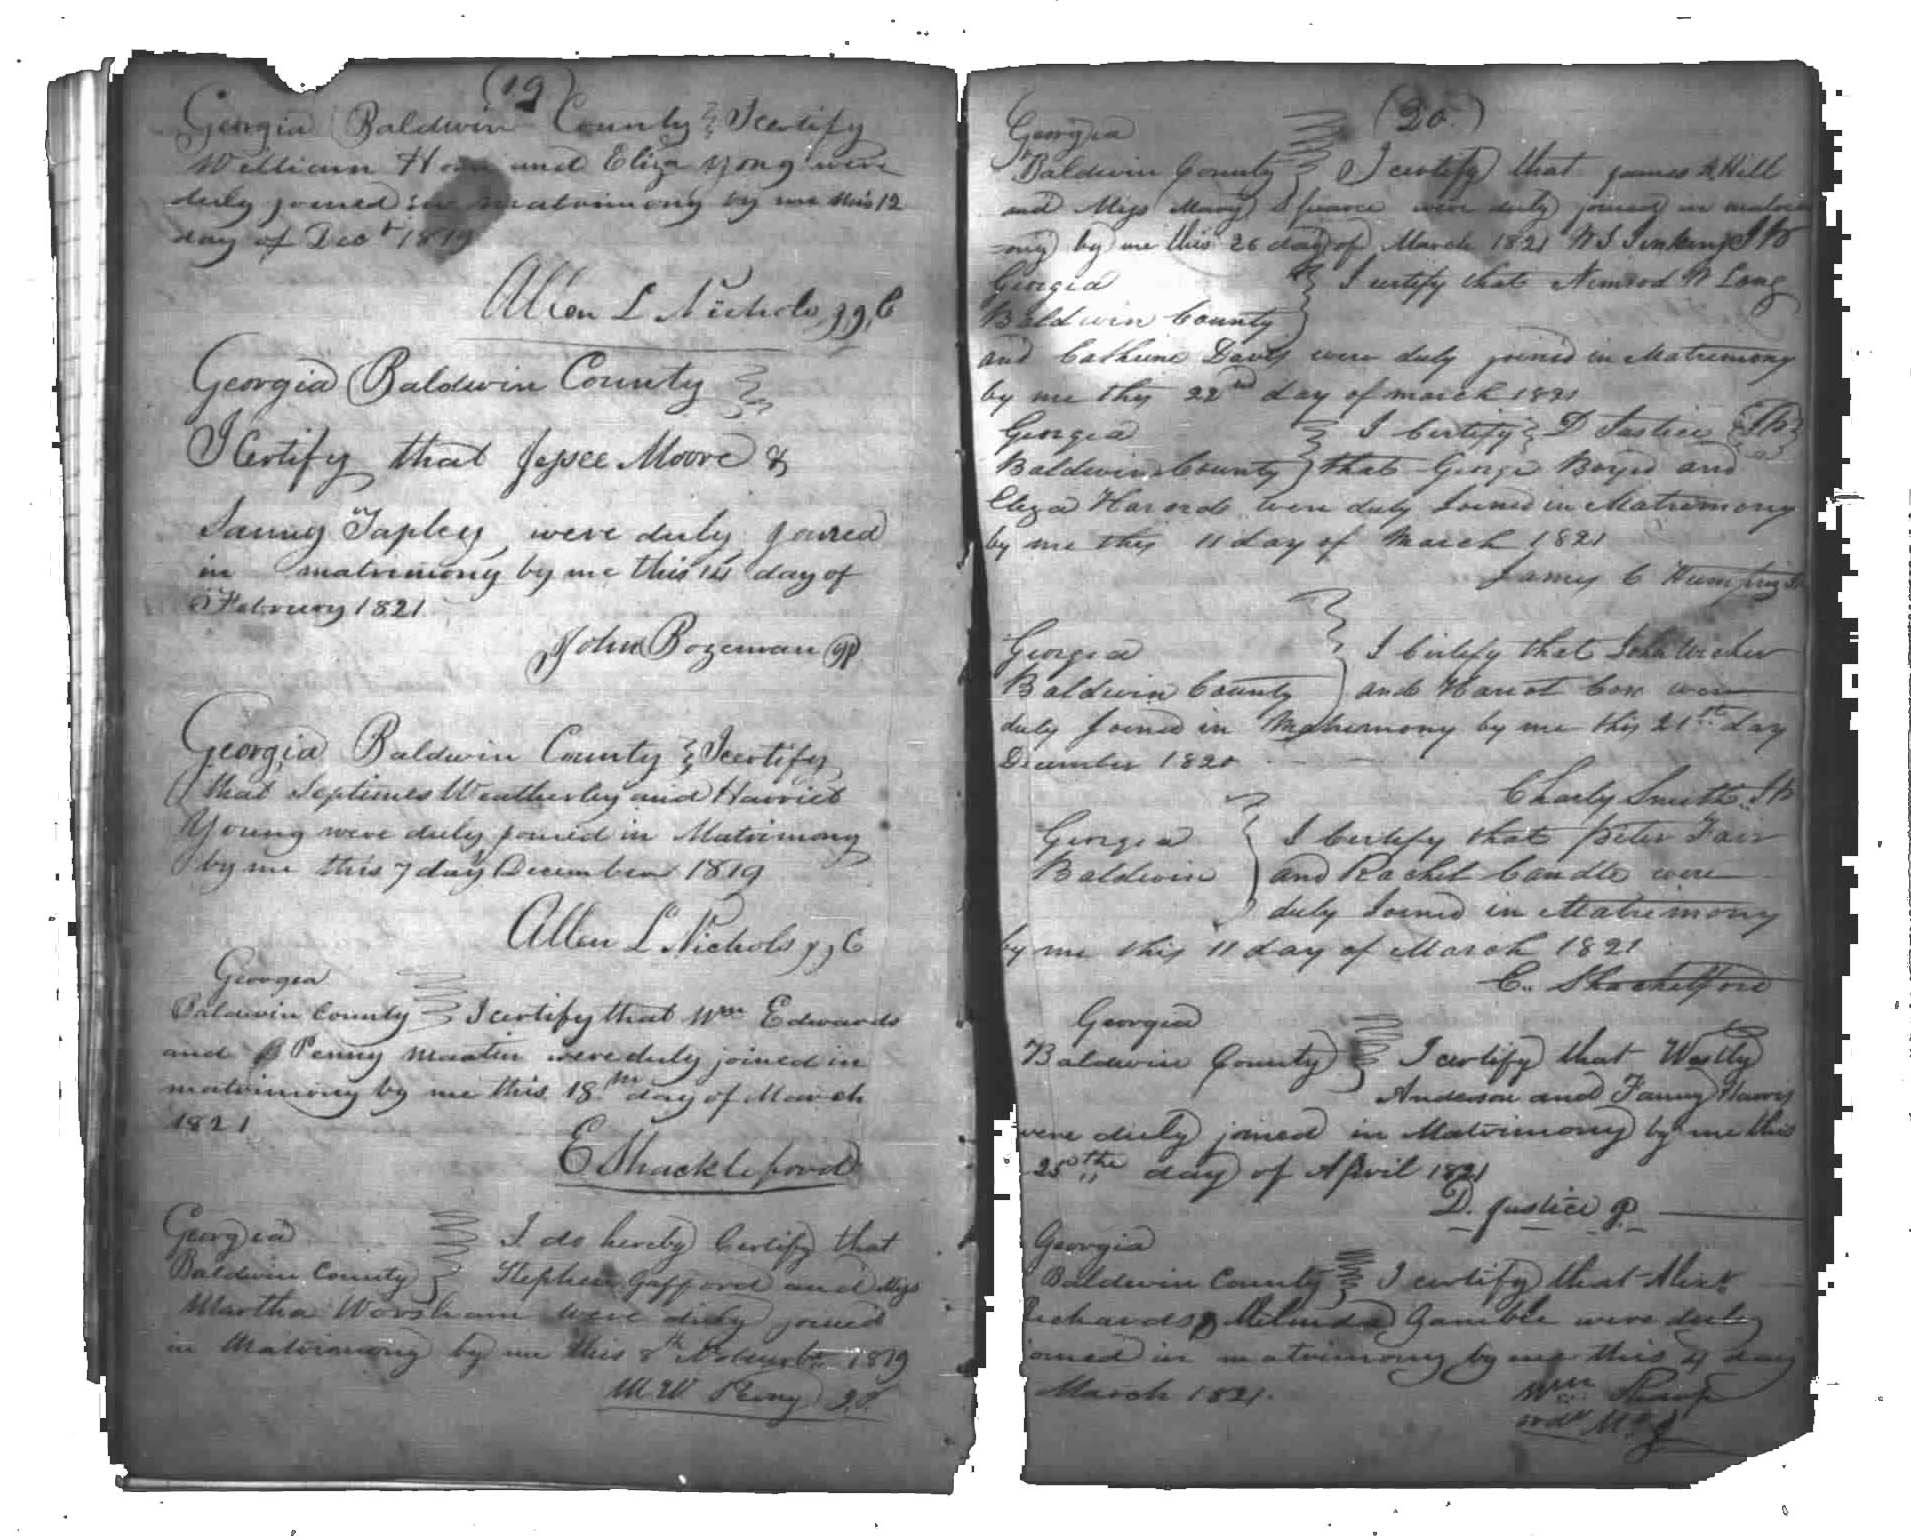 (19)
Georgia Baldwin County I certify
William and Eliza yong were
duly joined in matrimony by me this 12
day of Decr 1819
Allen L Nichols J, J, C
Georgia Baldwin County
I Certify that Jessee Moore &
Tapley were duly joined
in matrimony by me this 14 day of
Februery 1821
John Bozeman JP
Georgia Baldwin County I certify
that Septimes Weatherley and Harriet
Young were duly joined in Matrimony
by me this 7 day December 1819
Allen L Nichols J, J, C
Georgia
Baldwin County I certify that Wm Edwards
and Penny Martin were duly joined in
matrimony by me this 18th day of March
1821
E Shackleford
Georgia I do hereby Certify that
Baldwin County Stephen Gafford and Miss
Martha Worsham were duly joined
in Matrimony by me this 8th 1819
(20.)
Georgia
Baldwin County I certify that James Hill
and Miss Mary were duly joined in matrim
=ony by me this 26 day of March 1821
Georgia I certify that Nimrod W Long
Baldwin County
and Catherine Davis were duly joined in Matrimony
by me this 22nd day of march 1821
Georgia I Certify D Justice
Baldwin County that George Boyd and
Eliza were duly Joined in Matrimony
by me this 11 day of March 1821
James C
Georgia I Certify that John
Baldwin County and Hariot Cox were
duly Joined in Matrimony by me this 21st day
December 1820
Charly Smith J P
Georgia I Certify that Peter Fair
Baldwin and Rachel Caudle were
duly Joined in Matrimony
by me this 11 day of March 1821
E. Shackelford
Georgia
Baldwin County I certify that Westly
Anderson and Fanny Harris
were duly joined in Matrimony by me this
25the day of April 1821
D. Justice JP
Georgia
Baldwin County I certify that Alexr
Richards & Milinda Gamble were duly
joined in matrimony by me this 4 day
March 1821.
Wm Sharp